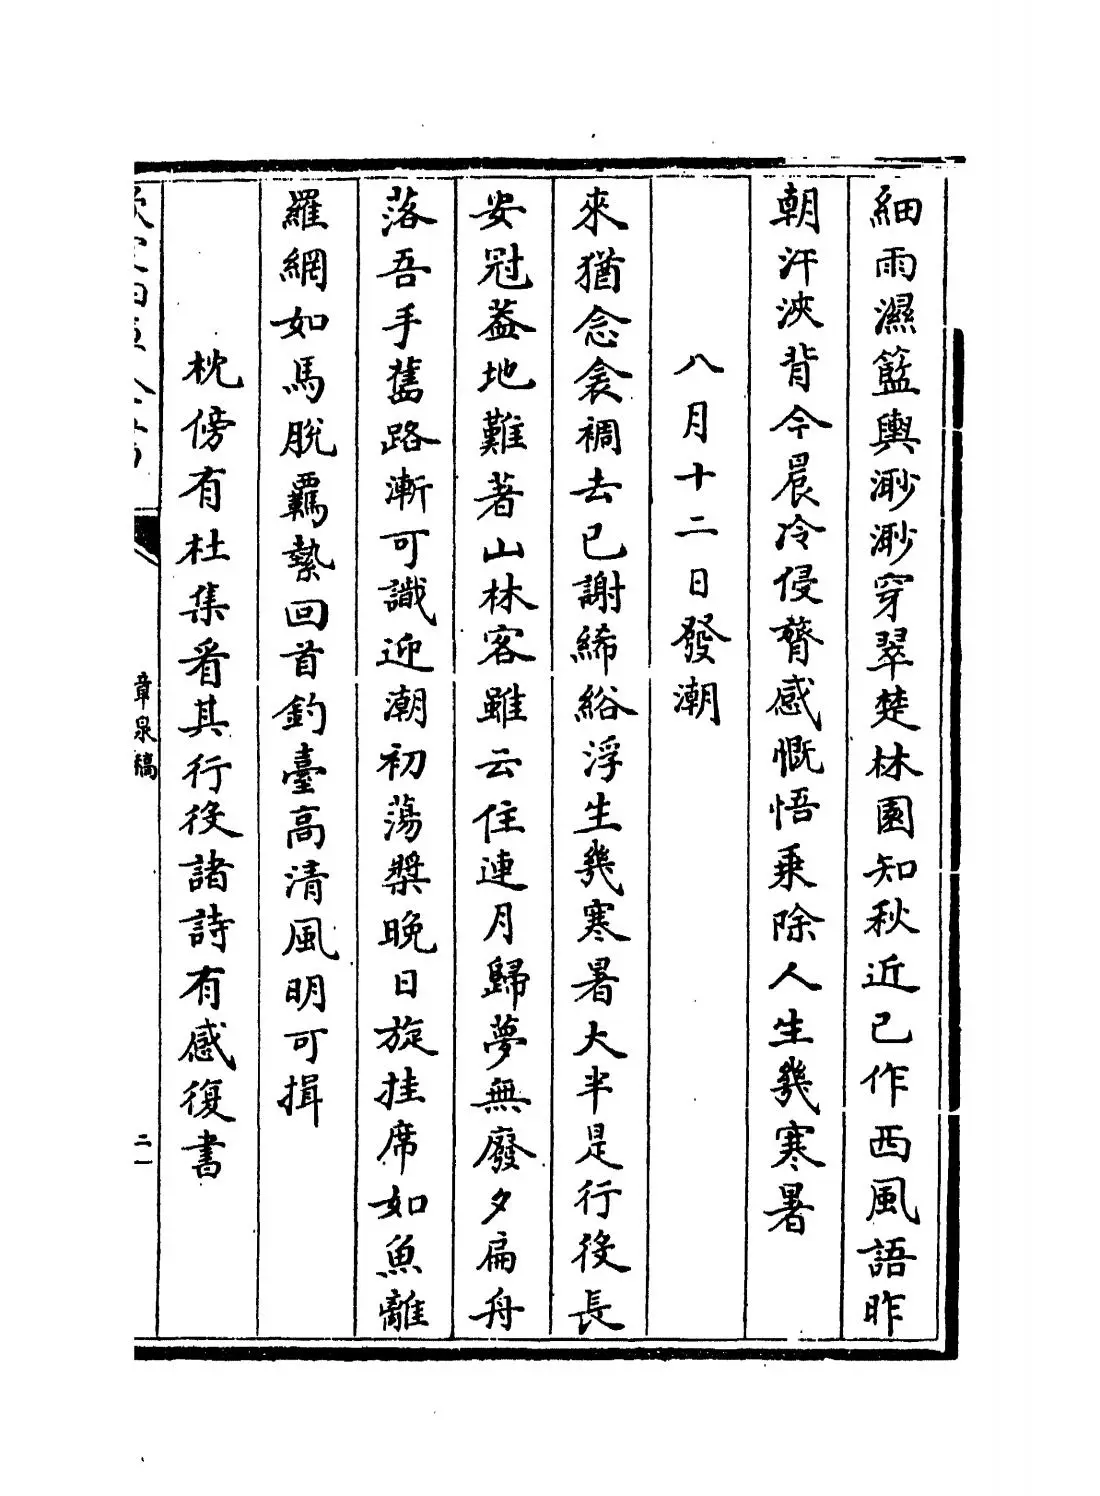 細雨濕籃輿渺渺穿翠楚林園知秋近已作西風語昨
朝汗浹背今晨冷侵膂感慨悟乗除人生幾寒暑
八月十二日發潮
來猶念衾裯去已謝絺綌浮生幾寒暑大半是行役長
安冠葢地難著山林客雖云住連月歸夢無廢夕扁舟
落吾手舊路漸可識迎潮初蕩槳晚日旋挂席如魚離
羅網如馬脱羈縶回首釣臺髙清風明可揖
枕傍有杜集看其行役諸詩有感復書
章泉稿
二